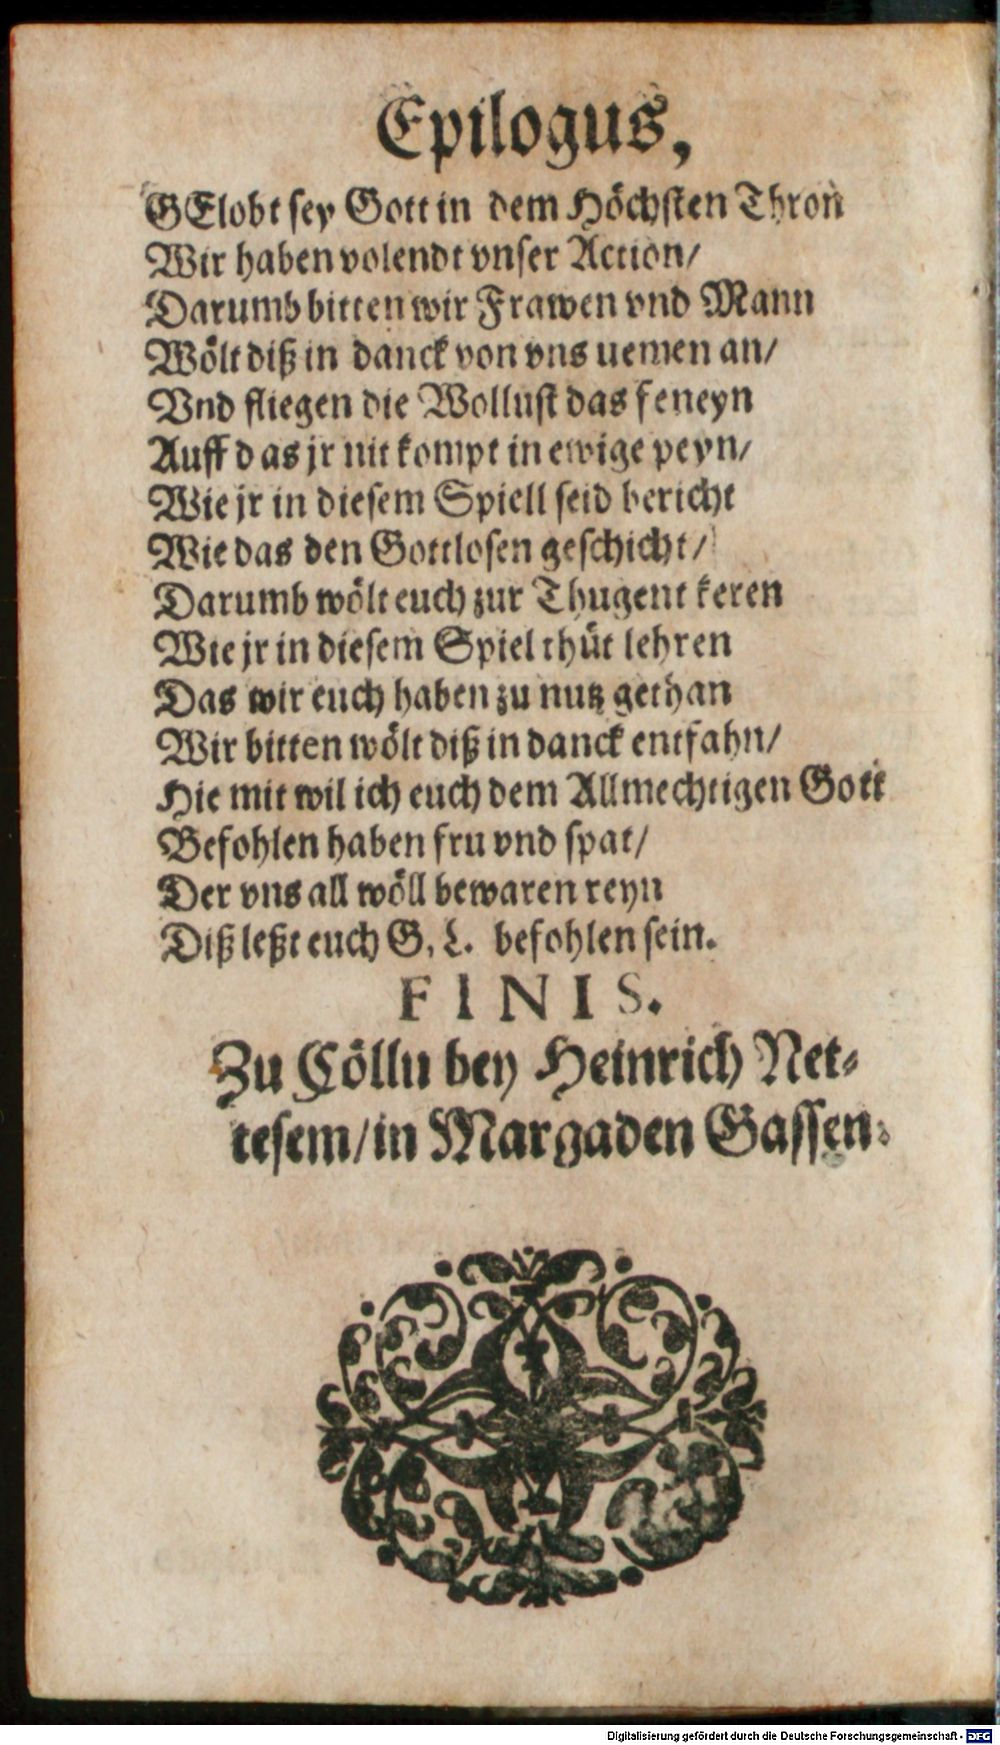 Epilogus,
GElobt sey Gott in dem Höchsten Thron
Wir haben volendt vnser Action/
Darumb bitten wir Frawen vnd Mann
Wölt diß in danck von vns uemen an/
Vnd fliegen die Wollust das feneyn
Auff das jr nit kompt in ewige peyn/
Wie jr in diesem Spiell seid bericht
Wie das den Gottlosen geschicht/
Darumb wölt euch zur Thugent keren
Wie jr in diesem Spiel thüt lehren
Das wir euch haben zu nutz gethan
Wir bitten wölt diß in danck entfahn/
Hie mit wil ich euch dem Allmechtigen Gott
Befohlen haben fru vnd spat/
Der vns all wöll bewaren reyn
Diß leßt euch G. L. befohlen sein.
FINIS.
Zu Cöllu bey Heinrich Net-
tesem/in Margaden Gassen.
Digitalisierung gefördert durch die Deutsche Forschungsgemeinschaft - DFG